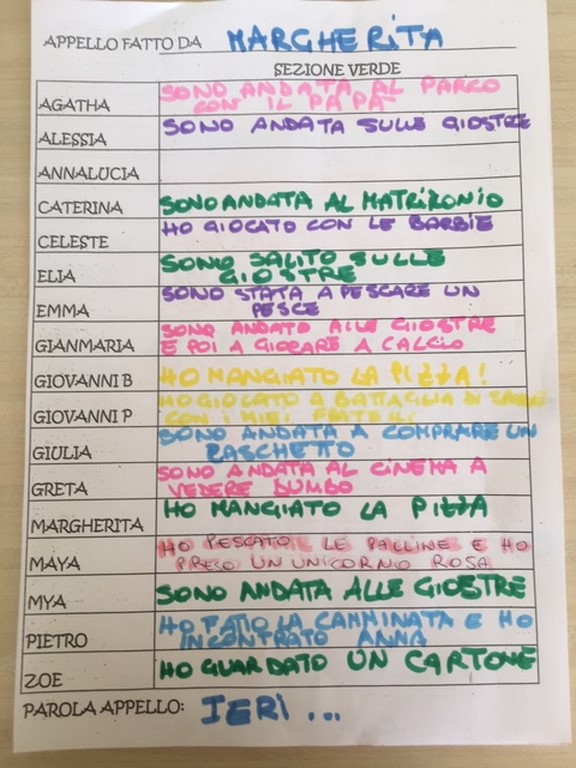 APPELLO FATTO DA MARGHERITA
SEZIONE VERDE
AGATHA SONO ANDATA AL PARCO
CON IL PAPA'
ALESSIA SONO ANDATA SULLE GIOSTRE
ANNALUCIA
CATERINA SONO ANDATA AL MATRIMONIO
CELESTE HO GIOCATO CON LE BARBIE
ELIA SONO SALITO SULLE
GIOSTRE
EMMA SONO STATA A PESCARE UN
PESCE
GIANMARIA SONO ANDATO ALLE GIOSTRE
E POI A GIOCARE A CALCIO
GIOVANNI B HO MANGIATO LA PIZZA!
GIOVANNI P HO GIOCATO A BATTAGLIA DI
CON I MIEI FRATELLI
GIULIA SONO ANDATA A COMPRARE UN
CASCHETTO
GRETA SONO ANDATA AL CINEMA A
VEDERE DUMBO
MARGHERITA HO MANGIATO LA PIZZA
MAYA HO PESCATO LE PALLINE E HO
PRESO UN UNICORNO ROSA
MYA SONO ANDATA ALLE GIOSTRE
PIETRO HO FATTO LA CAMMINATA E HO
INCONTRATO ANNA
ZOE HO GUARDATO UN CARTONE
PAROLA APPELLO: IERI ...